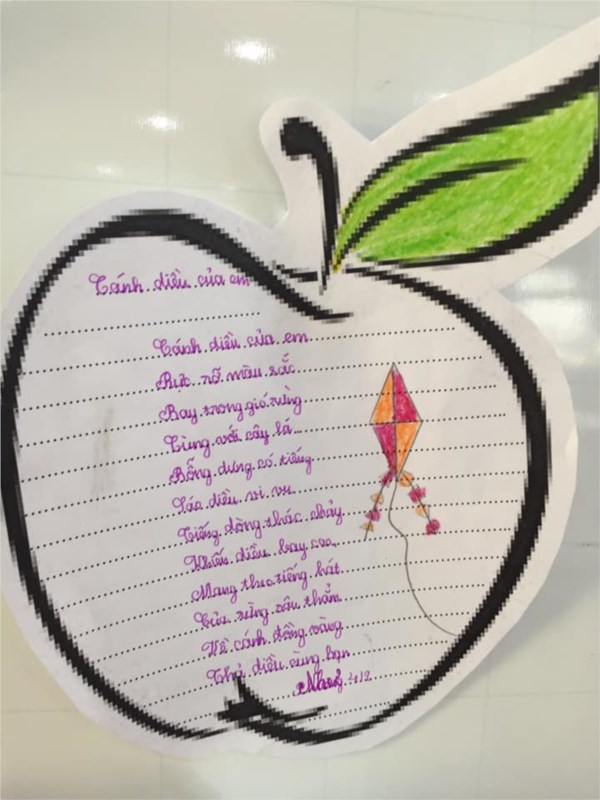 Cánh diều của em
Cánh diều của em
Rực rỡ màu sắc
Bay trong gió rừng
Cùng với cây lá...
Bỗng dưng có tiếng
Sáo diều vi vu
Tiếng dòng thác chảy
Khiến diều bay cao
Mang theo tiếng hát
Của rừng sâu thẳm
Về cánh đồng vàng
Thả diều cùng bạn
4/2